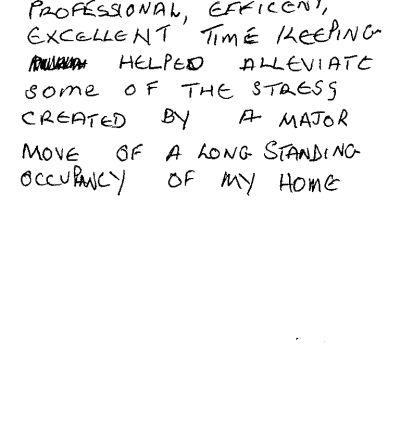 PROFESSIONAL, EFFICENT,
EXCELLENT TIME KEEPING
HELPED ALLEVIATE
SOME OF THE STRESS
CREATED BY A MAJOR
MOVE OF A LONG STANDING
OCCUPANCY OF MY HOME